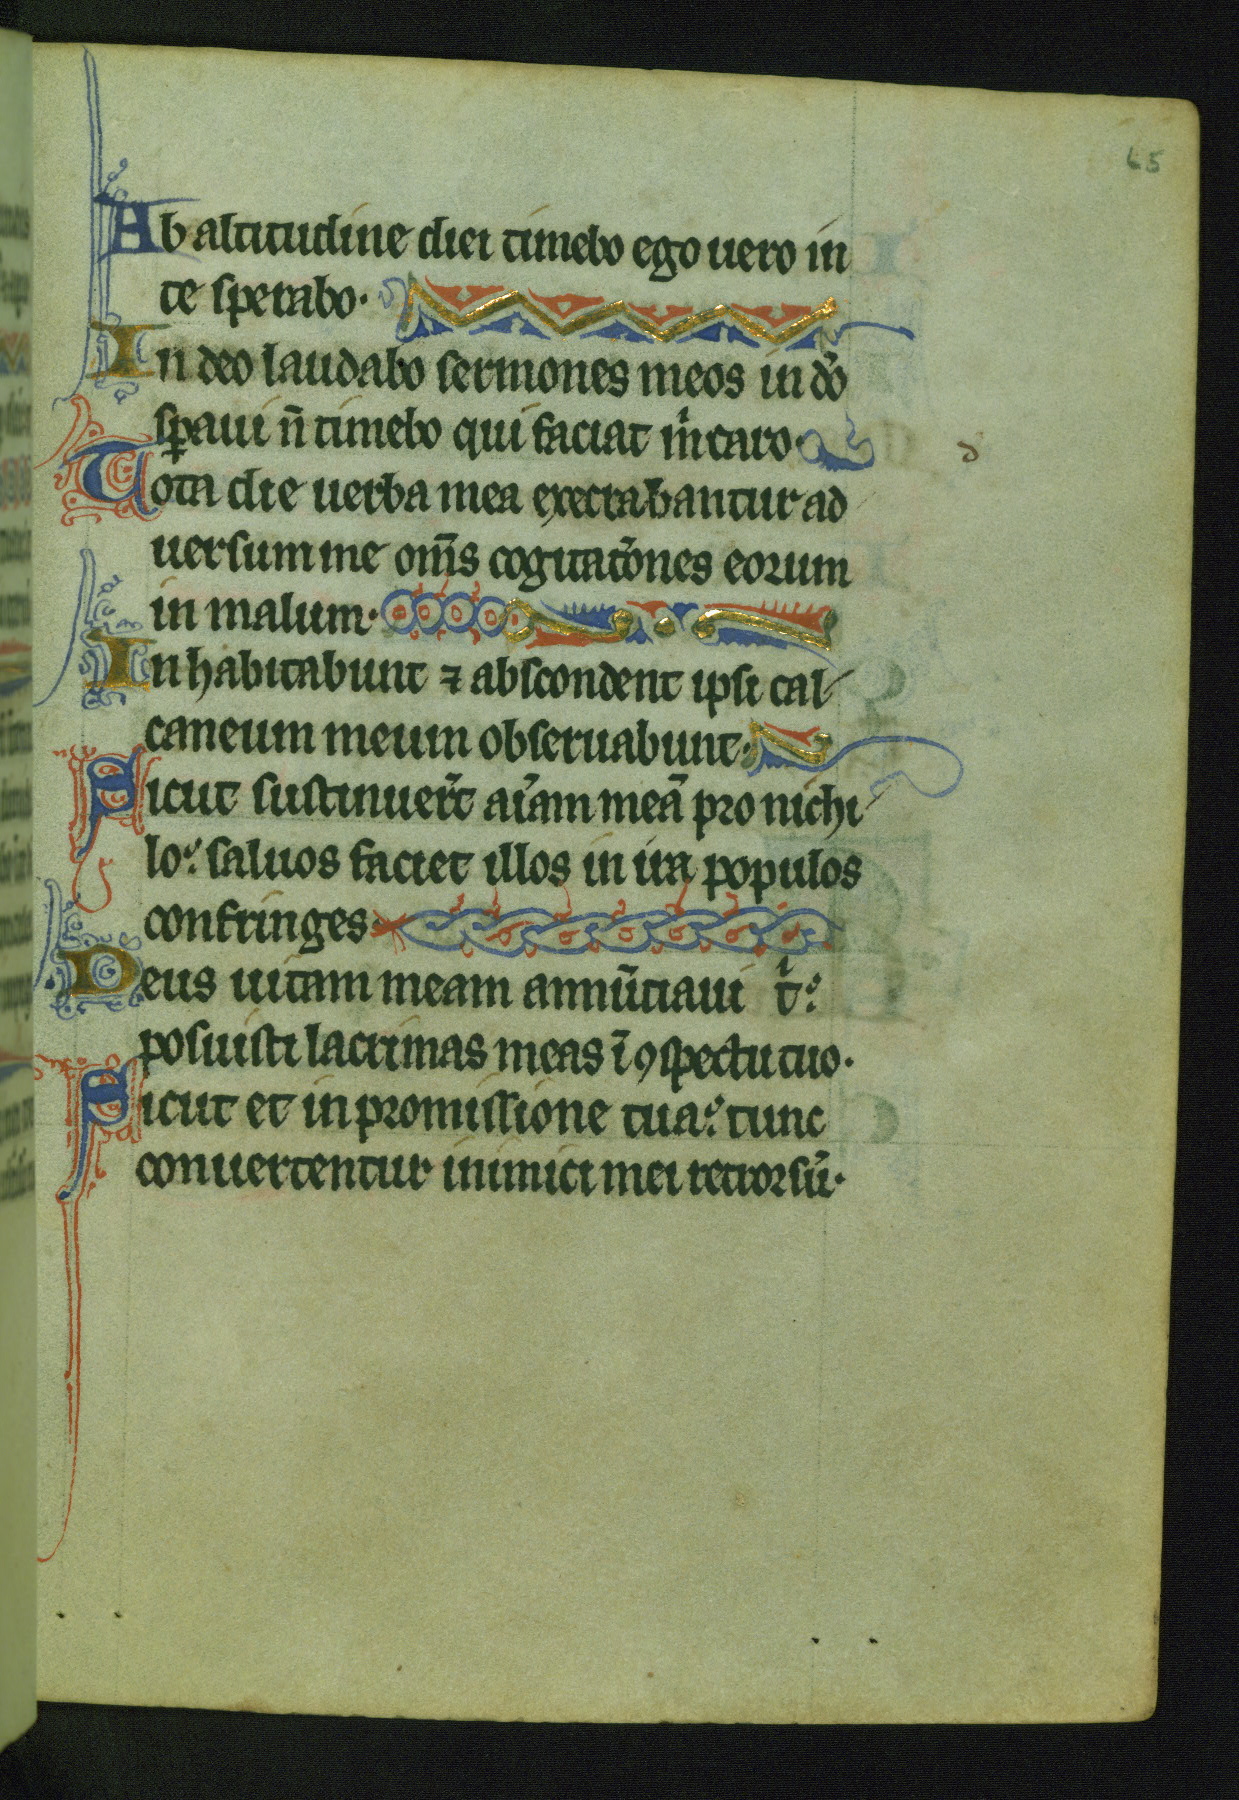 65
Ab altitudine diei timebo ego uero in
te sperabo·
In deo laudabo sermones meos in do̅
sꝑaui n̅ timebo qui faciat m̍ caro·
Tota die uerba mea execrabantur ad
uersum me om̅s cogitato̅nes eorum
in malum·
Inhabitabunt ⁊ abscondent ipsi cal
caneum meum obseruabunt·
Sicut sustinuer̅t ai̅am mea̅ pro nichi
lo: saluos faciet illos in ira populos
confringes
Deus uitam meam annu̅tiaui t̍:
posuisti lacrimas meas i̅ ꝯspectu tuo·
Sicut et in promissione tua: tunc
conuertentur inimici mei retrorsu̅·